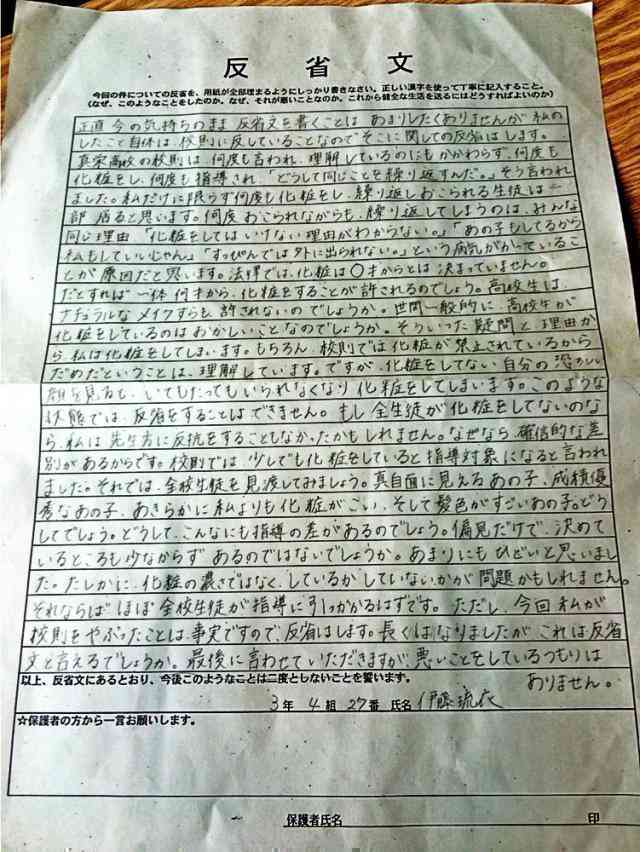 反省文
今回の件についての反省を、用紙が全部埋まるようにしっかり書きなさい。正しい漢字を使って丁寧に記入すること。
(なぜ、このようなことをしたのか。なぜ、それが悪いことなのか。これから健全な生活を送るにはどうすればよいのか)
正直今の気持ちのまま反省文を書くことはあまりしたくありませんが私の
したこと自体は、校則に反していることなのでそこに関しての反省はします。
真栄高校の校則は何度も言われ、理解しているのにもかかわらず、何度も
化粧をし、何度も指導され「どうして同じことを繰り返すんだ。」そう言われ
ました。私だけに限らず何度も化粧をし、繰り返しおこられる生徒は一
部居ると思います。何度おこられながらも、繰り返してしまうのは、みんな
同じ理由「化粧をしてはいけない理由がわからない。」「あの子もしてるから
私もしていいじゃん」「すっぴんでは外に出られない。」という病気がかっているこ
とが原因だと思います。法律では、化粧は〇才からとは決まっていません。
だとすれば一体何才から、化粧をすることが許されるのでしょう。高校生は、
ナチュラルなメイクすらも許されないのでしょうか。世間一般的に、高校生が
化粧をしているのはおかしいことなのでしょうか。そういった疑問と理由か
ら、私は化粧をしてしまいます。もちろん、校則では化粧が禁止されているから
だめだということは、理解しています。ですが、化粧をしてない自分の恐ろしい
顔を見ると、いてもたってもいられなくなり化粧をしてしまいます。このような
状態では、反省をすることはできません。もし全生徒が化粧をしてないのな
ら、私は先生方に反抗をすることもなかったかもしれません。なぜなら、確信的な差
別があるからです。校則では、少しでも化粧をしていると指導対象になると言われ
ました。それでは、全校生徒を見渡してみましょう。真面目に見えるあの子、成績優
秀なあの子、あきらかに私よりも化粧がこい、そして髪色がすごいあの子。どう
してでしょう。どうして、こんなにも指導の差があるのでしょう。偏見だけで、決めて
いるところも少なからずあるのではないでしょうか。あまりにもひどいと思いまし
た。たしかに、化粧の濃さではなく、しているかしていないかが問題かもしれません。
それならばほぼ全校生徒が指導に引っかかるはずです。ただし、今回私が
校則をやぶったことは、事実ですので、反省はします。長くはなりましたがこれは反省
文と言えるでしょうか。最後に言わせていただきますが、悪いことをしているつもりは
ありません。
以上、反省文にあるとおり、今後このようなことは二度としないことを誓います。
3年 4組 27番 氏名 伊藤琉衣
☆保護者の方から一言お願いします。
保護者氏名 印